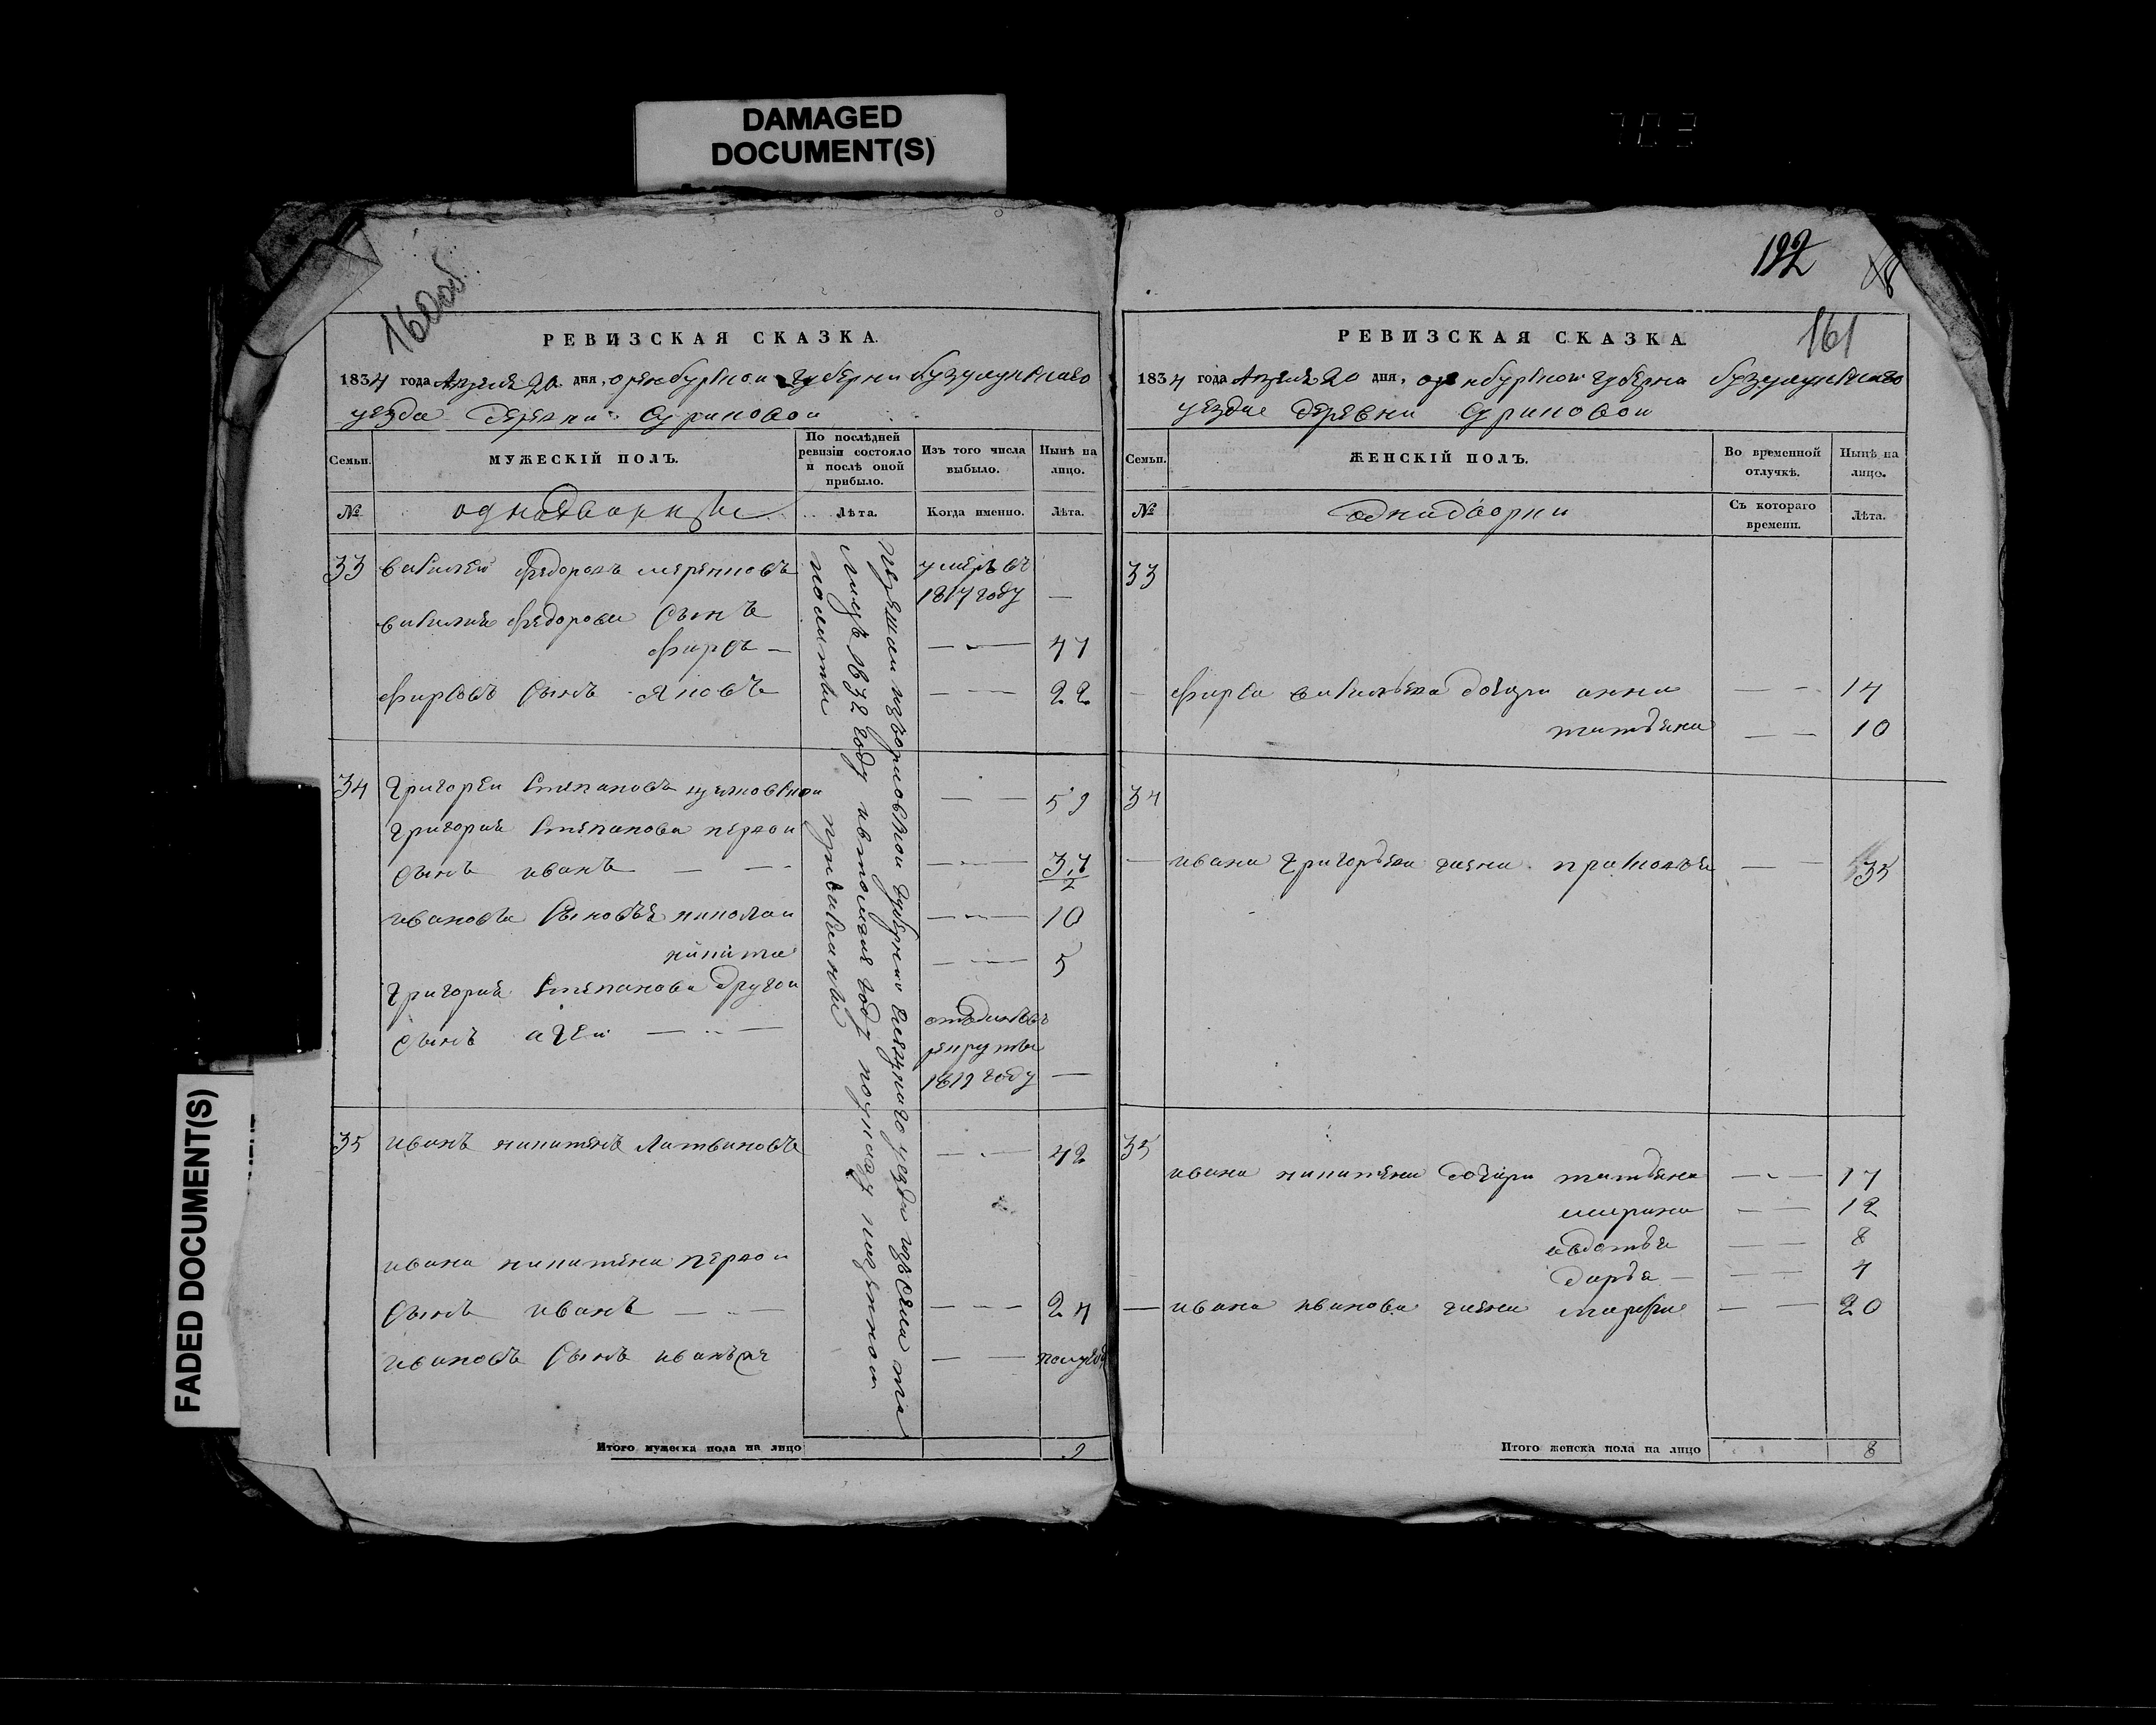 DAMAGED
DOCUMENT(S)
FADED DOCUMENT(S)
703
160 об
РЕВИЗСКАЯ СКАЗКА.
1834 года Апреля 20 дня, оренбурскои губерни бузулукскаго
уезда деревни суриковои
Семьи.
МУЖЕСКІЙ ПОЛЪ.
По послѣдней ревизіи состояло и послѣ оной прибыло.
Изъ того числа выбыло.
Нынѣ на лицо.
№
однодворцы
Лѣта.
Когда именно.
Лѣта.
33 василей федоровъ умеръ въ
1817 году —
василия федорова сынъ
фирсъ — 47
фирсовъ сынъ яковъ 22
34 григореи степановъ 59
григория степанова первои
сынъ иванъ 37
ивановы сыновья николаи 10
никита 5
григория степанова другои
сынъ агеи отданъ въ
рекруты
1819 году —
35 иванъ никитинъ литвиновъ 42
ивана никитина первои
сынъ иванъ 24
ивановъ сынъ иванъ же полугод
губернии уезда изъ села
1832 году году по указу казеннои
полаты
Итого мужеска пола на лицо 9
192
161
РЕВИЗСКАЯ СКАЗКА
1834 года Апреля 20 дня, оренбурскои губерни бузулукскаго
уезда деревни суриковои
Семьи.
ЖЕНСКІЙ ПОЛЪ.
Во временной отлучкѣ.
Нынѣ на лицо.
№
однодворки
Съ котораго времени.
Лѣта.
33
фирса васильева дочери анна 14
татьяна 10
34
ивана григорьева жена прасковья 35
35
ивана никитина дочери татьяна 17
марина 12
авдотья 8
дарья 4
ивана иванова жена марфа 20
Итого женска пола на лицо 8